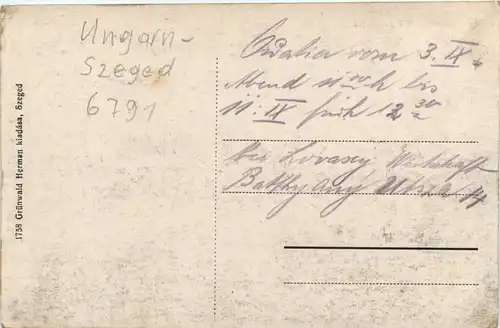 Ungarn-
Szeged
6791
1758 Grünwald Herman kiadása, Szeged
vom 3. IX.
Abend bis
11. IX früh 12 30
bei Lovasey Wirtschaft
14